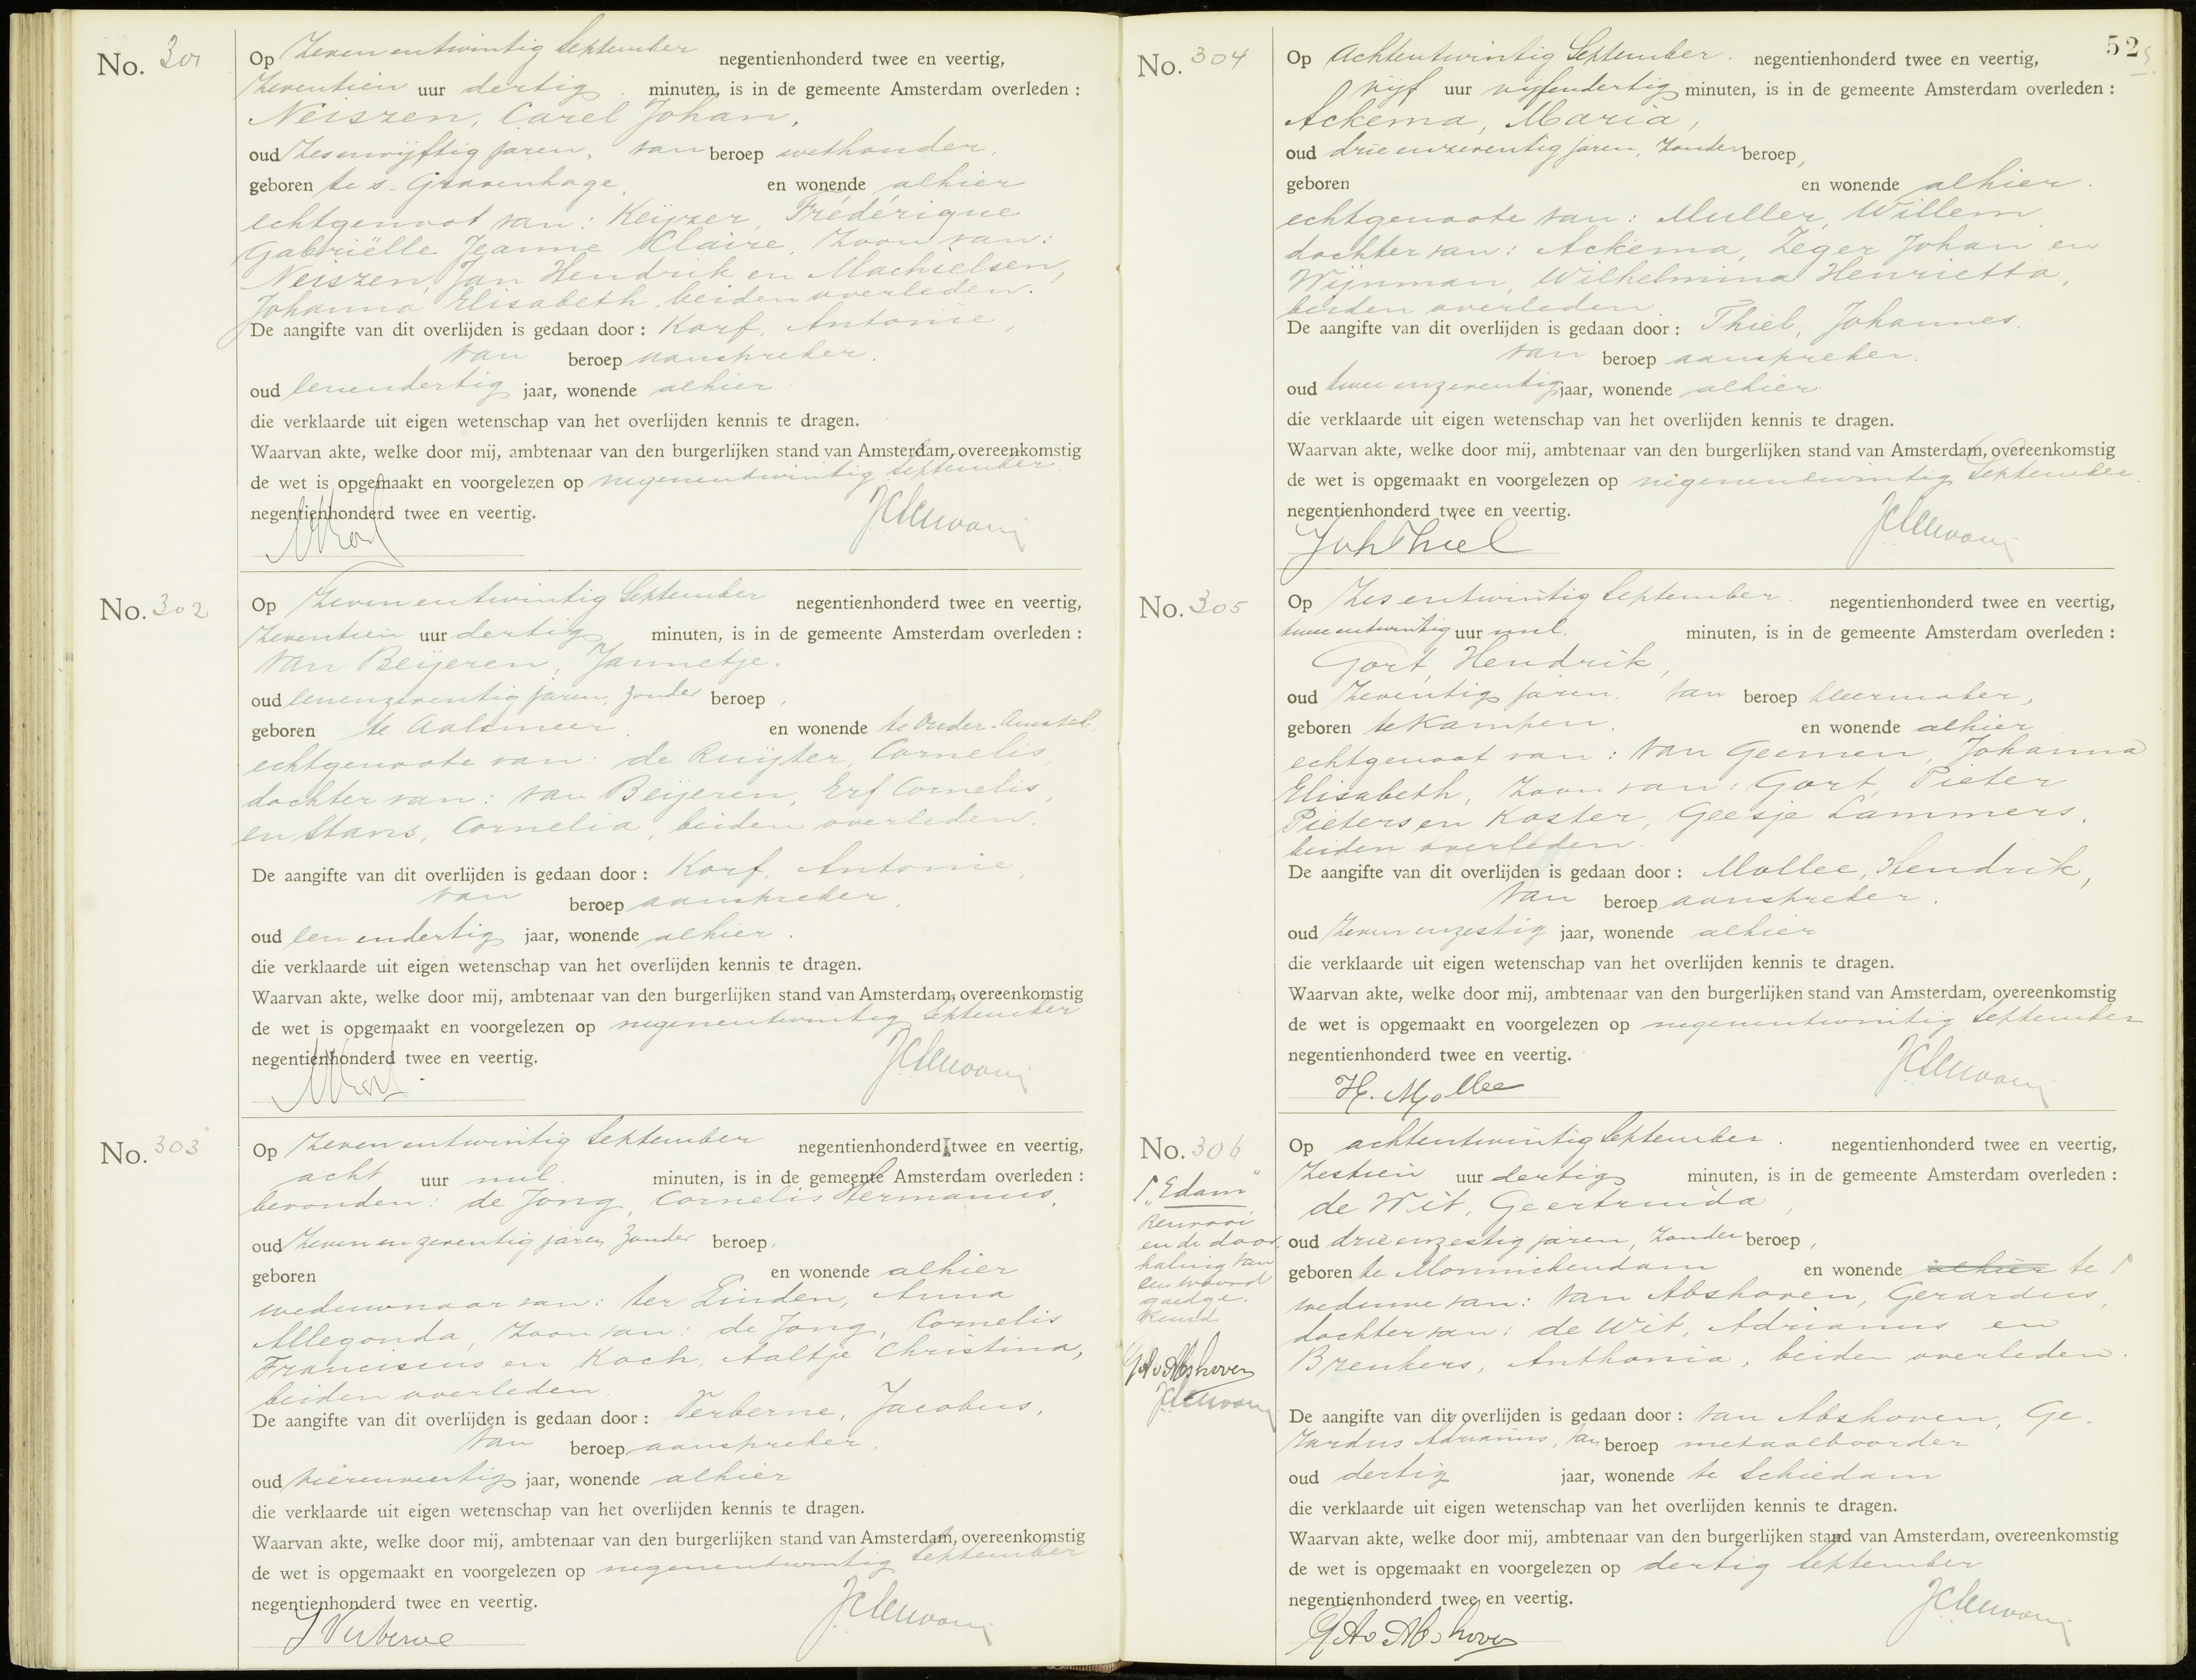 No. 301
Op Zevenentwintig September negentienhonderd twee en veertig,
Zeventien uur dertig minuten, is in de gemeente Amsterdam overleden :
Neiszen, Carel Johan,
oud Zesenvijftig jaren, van beroep wethouder,
geboren te s-Gravenhage, en wonende alhier
echtgenoot van: Keijzer, Frédérique
Gabriëlle Jeanne Claire, Zoon van:
Neiszen, Jan Hendrik en Machielsen,
Johanna Elisabeth, beiden overleden.
De aangifte van dit overlijden is gedaan door : Korf, Antonie,
van beroep aanspreker.
oud Eenendertig jaar, wonende alhier
die verklaarde uit eigen wetenschap van het overlijden kennis te dragen.
Waarvan akte, welke door mij, ambtenaar van den burgerlijken stand van Amsterdam, overeenkomstig
de wet is opgemaakt en voorgelezen op negenentwintig September
negentienhonderd twee en veertig.
No. 302
Op Zevenentwintig September negentienhonderd twee en veertig,
Zeventien uur dertig minuten, is in de gemeente Amsterdam overleden :
van Beijeren, Jannetje.
oud eenenzeventig jaren, zonder beroep,
geboren te Aalsmeer, en wonende te Ouder-Amstel,
echtgenoote van: de Ruijter, Cornelis,
dochter van: van Beijeren, Erf Cornelis,
en Stans, Cornelia, beiden overleden.
De aangifte van dit overlijden is gedaan door : Korf, Antonie,
van beroep aanspreker,
oud een endertig jaar, wonende alhier.
die verklaarde uit eigen wetenschap van het overlijden kennis te dragen.
Waarvan akte, welke door mij, ambtenaar van den burgerlijken stand van Amsterdam, overeenkomstig
de wet is opgemaakt en voorgelezen op negenentwintig September
negentienhonderd twee en veertig.
No. 303
Op Zevenentwintig September negentienhonderd twee en veertig,
acht uur nul minuten, is in de gemeente Amsterdam overleden :
bevonden: de Jong, Cornelis Hermanus,
oud Zevenenzeventig jaren, zonder beroep,
geboren en wonende alhier
weduwnaar van: ter Linden, Anna
Allegonda, Zoon van: de Jong, Cornelis
Franciscus en Koch, Aaltje Christina,
beiden overleden.
De aangifte van dit overlijden is gedaan door : Verberne, Jacobus,
van beroep aanspreker,
oud vierenveertig jaar, wonende alhier
die verklaarde uit eigen wetenschap van het overlijden kennis te dragen.
Waarvan akte, welke door mij, ambtenaar van den burgerlijken stand van Amsterdam, overeenkomstig
de wet is opgemaakt en voorgelezen op negenentwintig September
negentienhonderd twee en veertig.
J Verberne
52
No. 304
Op Achtentwintig September. negentienhonderd twee en veertig,
vijf uur vijfendertig minuten, is in de gemeente Amsterdam overleden :
Ackema, Maria,
oud drieenzeventig jaren, Zonder beroep,
geboren en wonende alhier.
echtgenoote van: Muller, Willem
dochter van: Ackema, Zeger Johan en
Wijnman, Wilhelmina Henrietta,
beiden overleden.
De aangifte van dit overlijden is gedaan door : Thiel, Johannes.
van beroep aanspreker.
oud twee enzeventig jaar, wonende alhier
die verklaarde uit eigen wetenschap van het overlijden kennis te dragen.
Waarvan akte, welke door mij, ambtenaar van den burgerlijken stand van Amsterdam, overeenkomstig
de wet is opgemaakt en voorgelezen op negenentwintig September.
negentienhonderd twee en veertig.
Joh Thiel
No. 305
Op Zesentwintig September. negentienhonderd twee en veertig,
tweeentwintig uur nul. minuten, is in de gemeente Amsterdam overleden :
Gort, Hendrik,
oud Zeventig jaren, van beroep kleermaker,
geboren te Kampen, en wonende alhier
echtgenoot van: van Geemen, Johanna
Elisabeth, Zoon van: Gort, Pieter
Pieters en Koster, Geesje Lammers,
beiden overleden.
De aangifte van dit overlijden is gedaan door : Mollee, Hendrik,
van beroep aanspreker.
oud Zevenenzestig jaar, wonende alhier
die verklaarde uit eigen wetenschap van het overlijden kennis te dragen.
Waarvan akte, welke door mij, ambtenaar van den burgerlijken stand van Amsterdam, overeenkomstig
de wet is opgemaakt en voorgelezen op negenentwintig September
negentienhonderd twee en veertig.
H. Mollee
No. 306
"Edam"
Renvooi
en de door
haling van
een woord
goedge-
keurd
GA v Abshoven
Op achtentwintig September. negentienhonderd twee en veertig,
Zestien uur dertig minuten, is in de gemeente Amsterdam overleden :
de Wit, Geertruida,
oud drieenzestig jaren, Zonder beroep,
geboren te Monnickendam en wonende alhier te
weduwe van: van Abshoven, Gerardus,
dochter van: de Wit, Adrianus en
Breukers, Anthonia, beiden overleden.
De aangifte van dit overlijden is gedaan door : van Abshoven, Ge-
rardus Adrianus, van beroep metaalboorder
oud dertig jaar, wonende te Schiedam
die verklaarde uit eigen wetenschap van het overlijden kennis te dragen.
Waarvan akte, welke door mij, ambtenaar van den burgerlijken stand van Amsterdam, overeenkomstig
de wet is opgemaakt en voorgelezen op dertig September
negentienhonderd twee en veertig.
GA v Abshoven